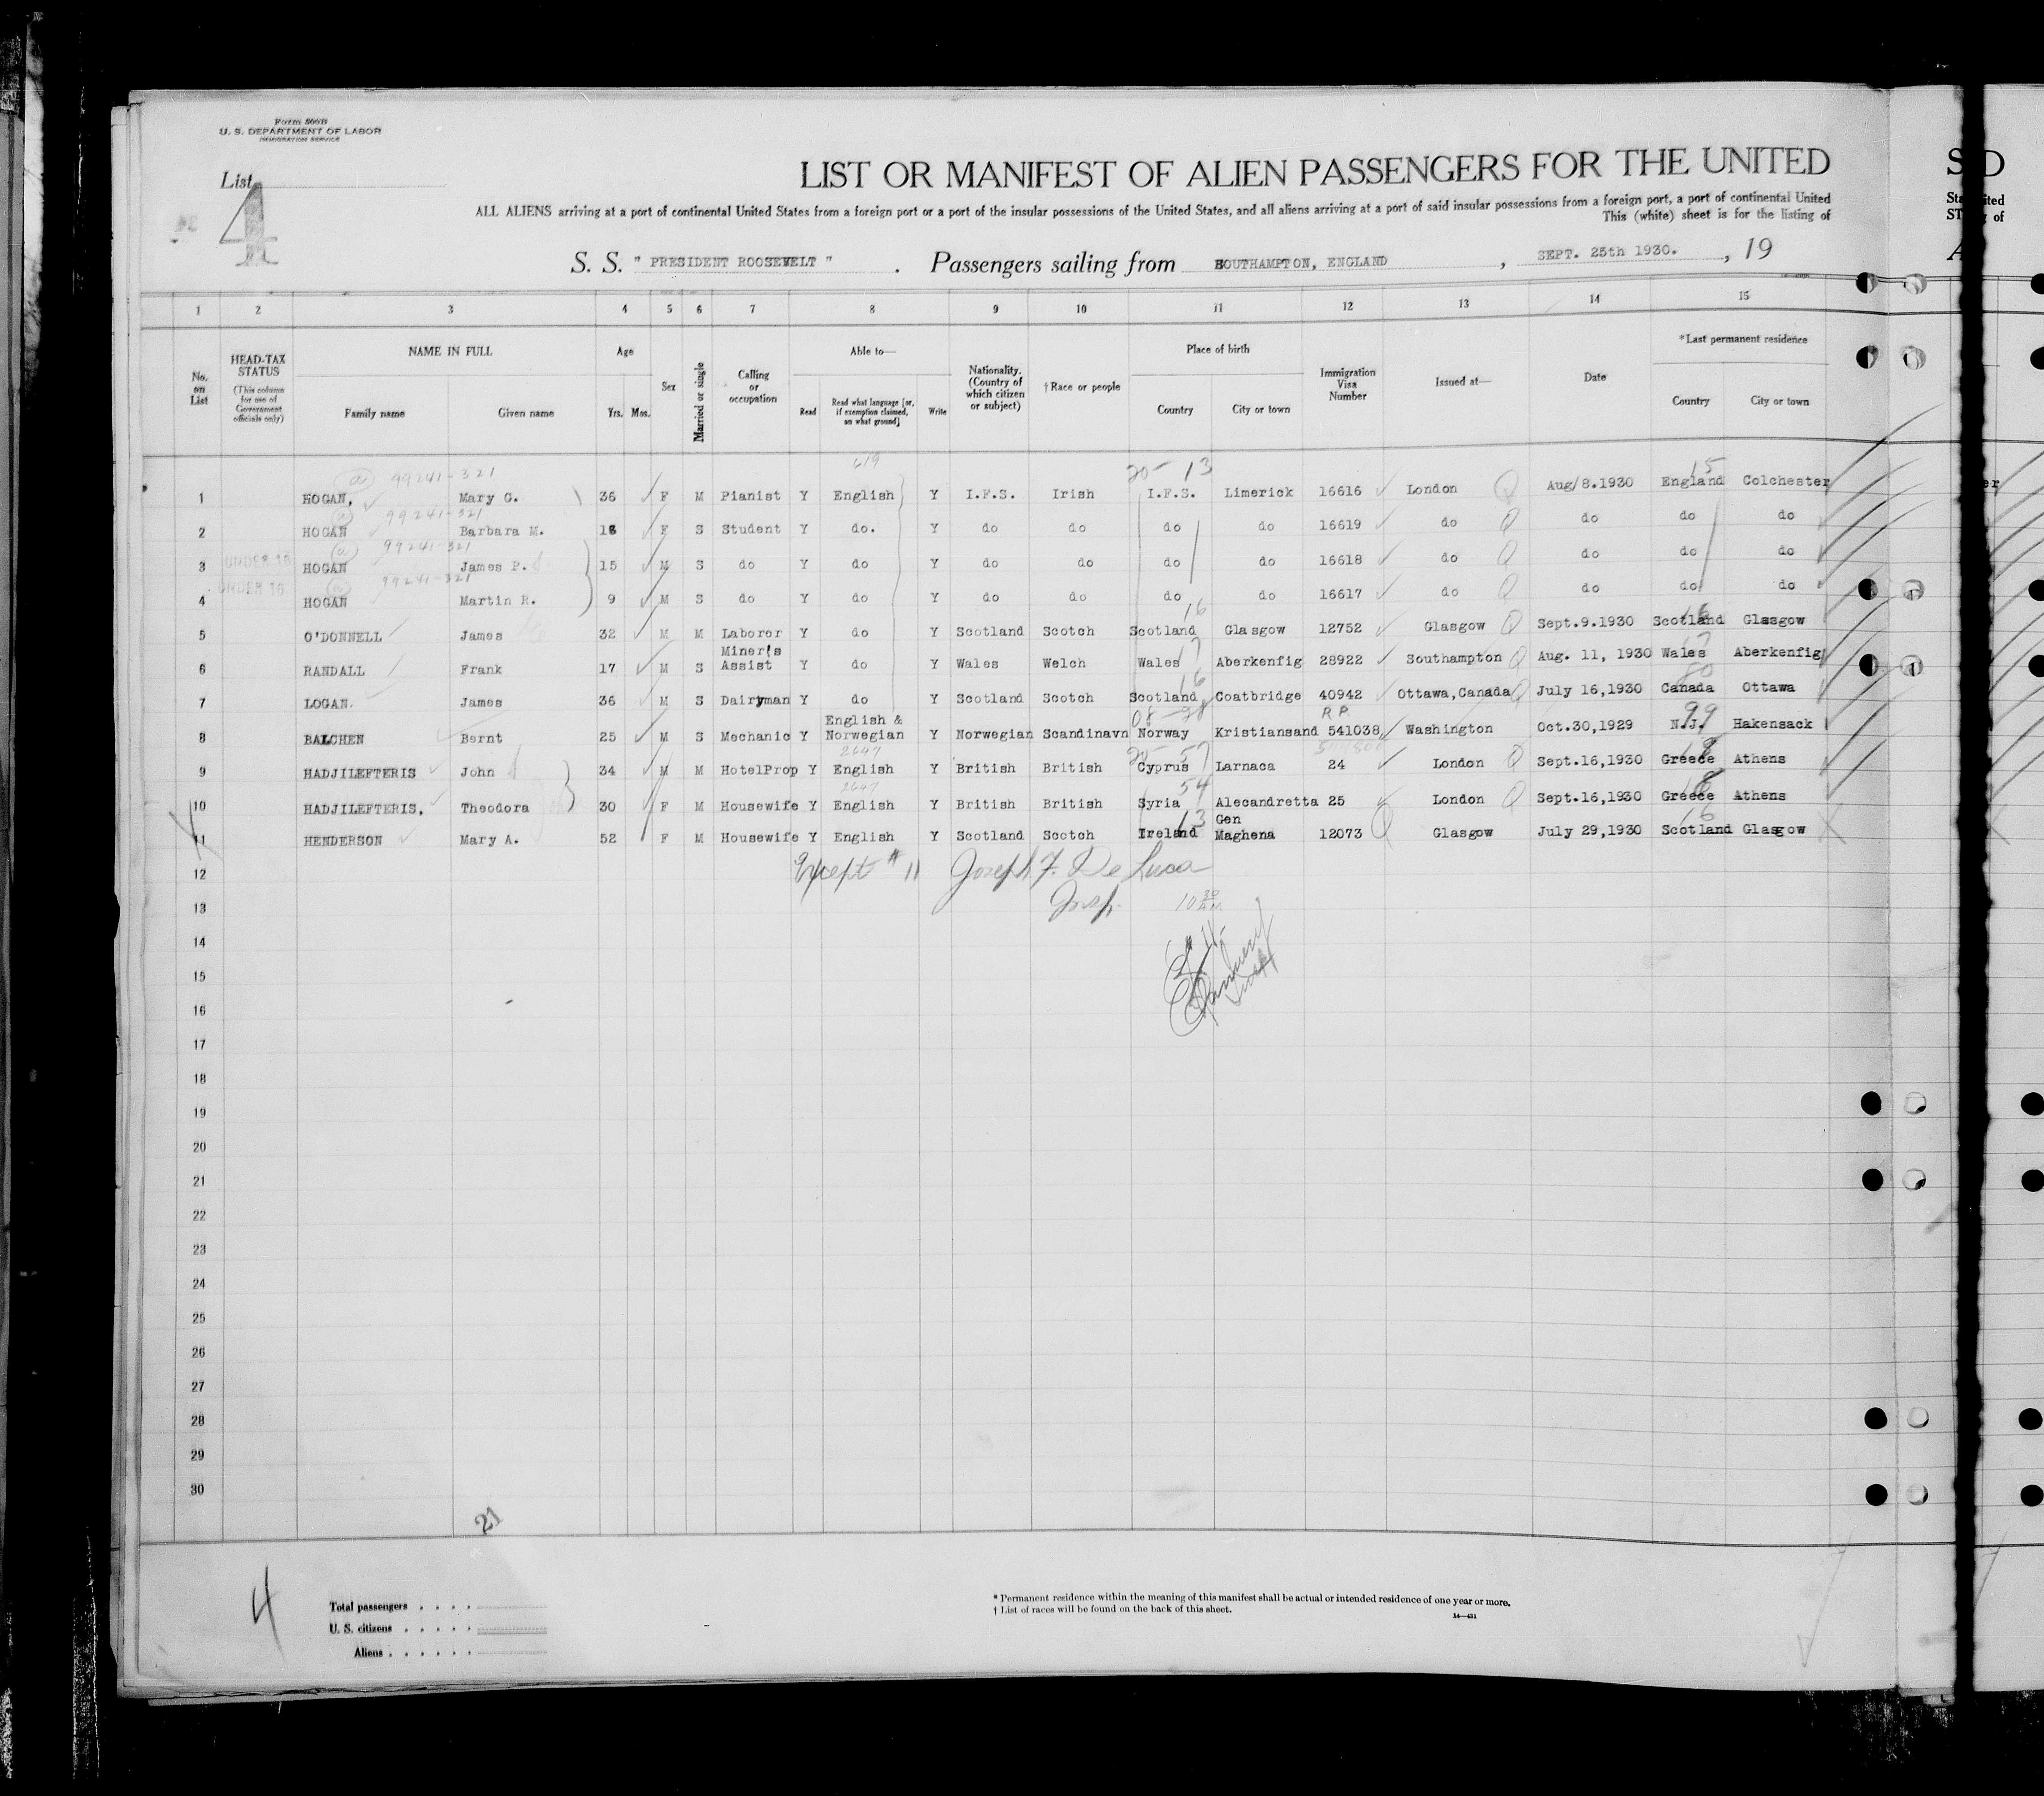 Form 500B
U. S. DEPARTMENT OF LABOR
IMMIGRATION SERVICE
List
4
LIST OR MANIFEST OF ALIEN PASSENGERS FOR THE UNITED
ALL ALIENS arriving at a port of continental United States from a foreign port or a port of the insular possessions of the United States, and all aliens arriving at a port of said insular possessions from a foreign port, a port of continental United
This (white) sheet is for the listing of
S. S. " PRESIDENT ROOSEVELT " . Passengers sailing from SOUTHAMPTON, ENGLAND , SEPT. 25th 1930. , 19
1 2 3 4 5 6 7 8 9 10 11 12 13 14 15
No. on List
HEAD-TAX STATUS (This column for use of Government officials only)
NAME IN FULL
Family name Given name
Age
Yrs. Mos.
Sex
Married or single
Calling or occupation
Able to—
Read
Read what language [or, if exemption claimed, on what ground]
Write
Nationality. (Country of which citizen or subject)
† Race or people
Place of birth
Country City or town
Immigration Visa Number
Issued at—
Date
*Last permanent residence
Country City or town
99241-321 619 20- 13 15
1 HOGAN, Mary G. 36 F M Pianist Y English Y I.F.S. Irish I.F.S. Limerick 16616 London Aug/8.1930 England Colchester
99241-321
2 HOGAN Barbara M. 18 F S Student Y do. Y do do do do 16619 do do do do
99241-321
3 UNDER 16 HOGAN James P. 15 M S do Y do Y do do do do 16618 do do do do
99241-321
4 UNDER 16 HOGAN Martin R. 9 M S do Y do Y do do do do 16617 do do do do
16 16
5 O'DONNELL James 32 M M Laborer Y do Y Scotland Scotch Scotland Glasgow 12752 Glasgow Sept.9.1930 Scotland Glasgow
17 17
6 RANDALL Frank 17 M S Miner's Assist Y do Y Wales Welch Wales Aberkenfig 28922 Southampton Aug. 11, 1930 Wales Aberkenfig
16
7 LOGAN. James 36 M S Dairyman Y do Y Scotland Scotch Scotland Coatbridge 40942 Ottawa,Canada July 16,1930 Canada Ottawa
R.P. 99
8 BALCHEN Bernt 25 M S Mechanic Y English & Norwegian Y Norwegian Scandinavn Norway Kristiansand 541038 Washington Oct.30,1929 N.J. Hakensack
2647 20- 57
9 HADJILEFTERIS John 34 M M HotelProp Y English Y British British Cyprus Larnaca 24 London Sept.16,1930 Greece Athens
2647 54
10 HADJILEFTERIS, Theodora 30 F M Housewife Y English Y British British Syria Alecandretta 25 London Sept.16,1930 Greece Athens
13 16
11 HENDERSON Mary A. 52 F M Housewife Y English Y Scotland Scotch Ireland Gen Maghena 12073 Glasgow July 29,1930 Scotland Glasgow
12 Except # 11 Joseph F. De Luca
13 Insp. 10 30 A.M.
14
15
16
17
18
19
20
21
22
23
24
25
26
27
28
29
30
21
4
Total passengers
U. S. citizens
Aliens
* Permanent residence within the meaning of this manifest shall be actual or intended residence of one year or more.
† List of races will be found on the back of this sheet.